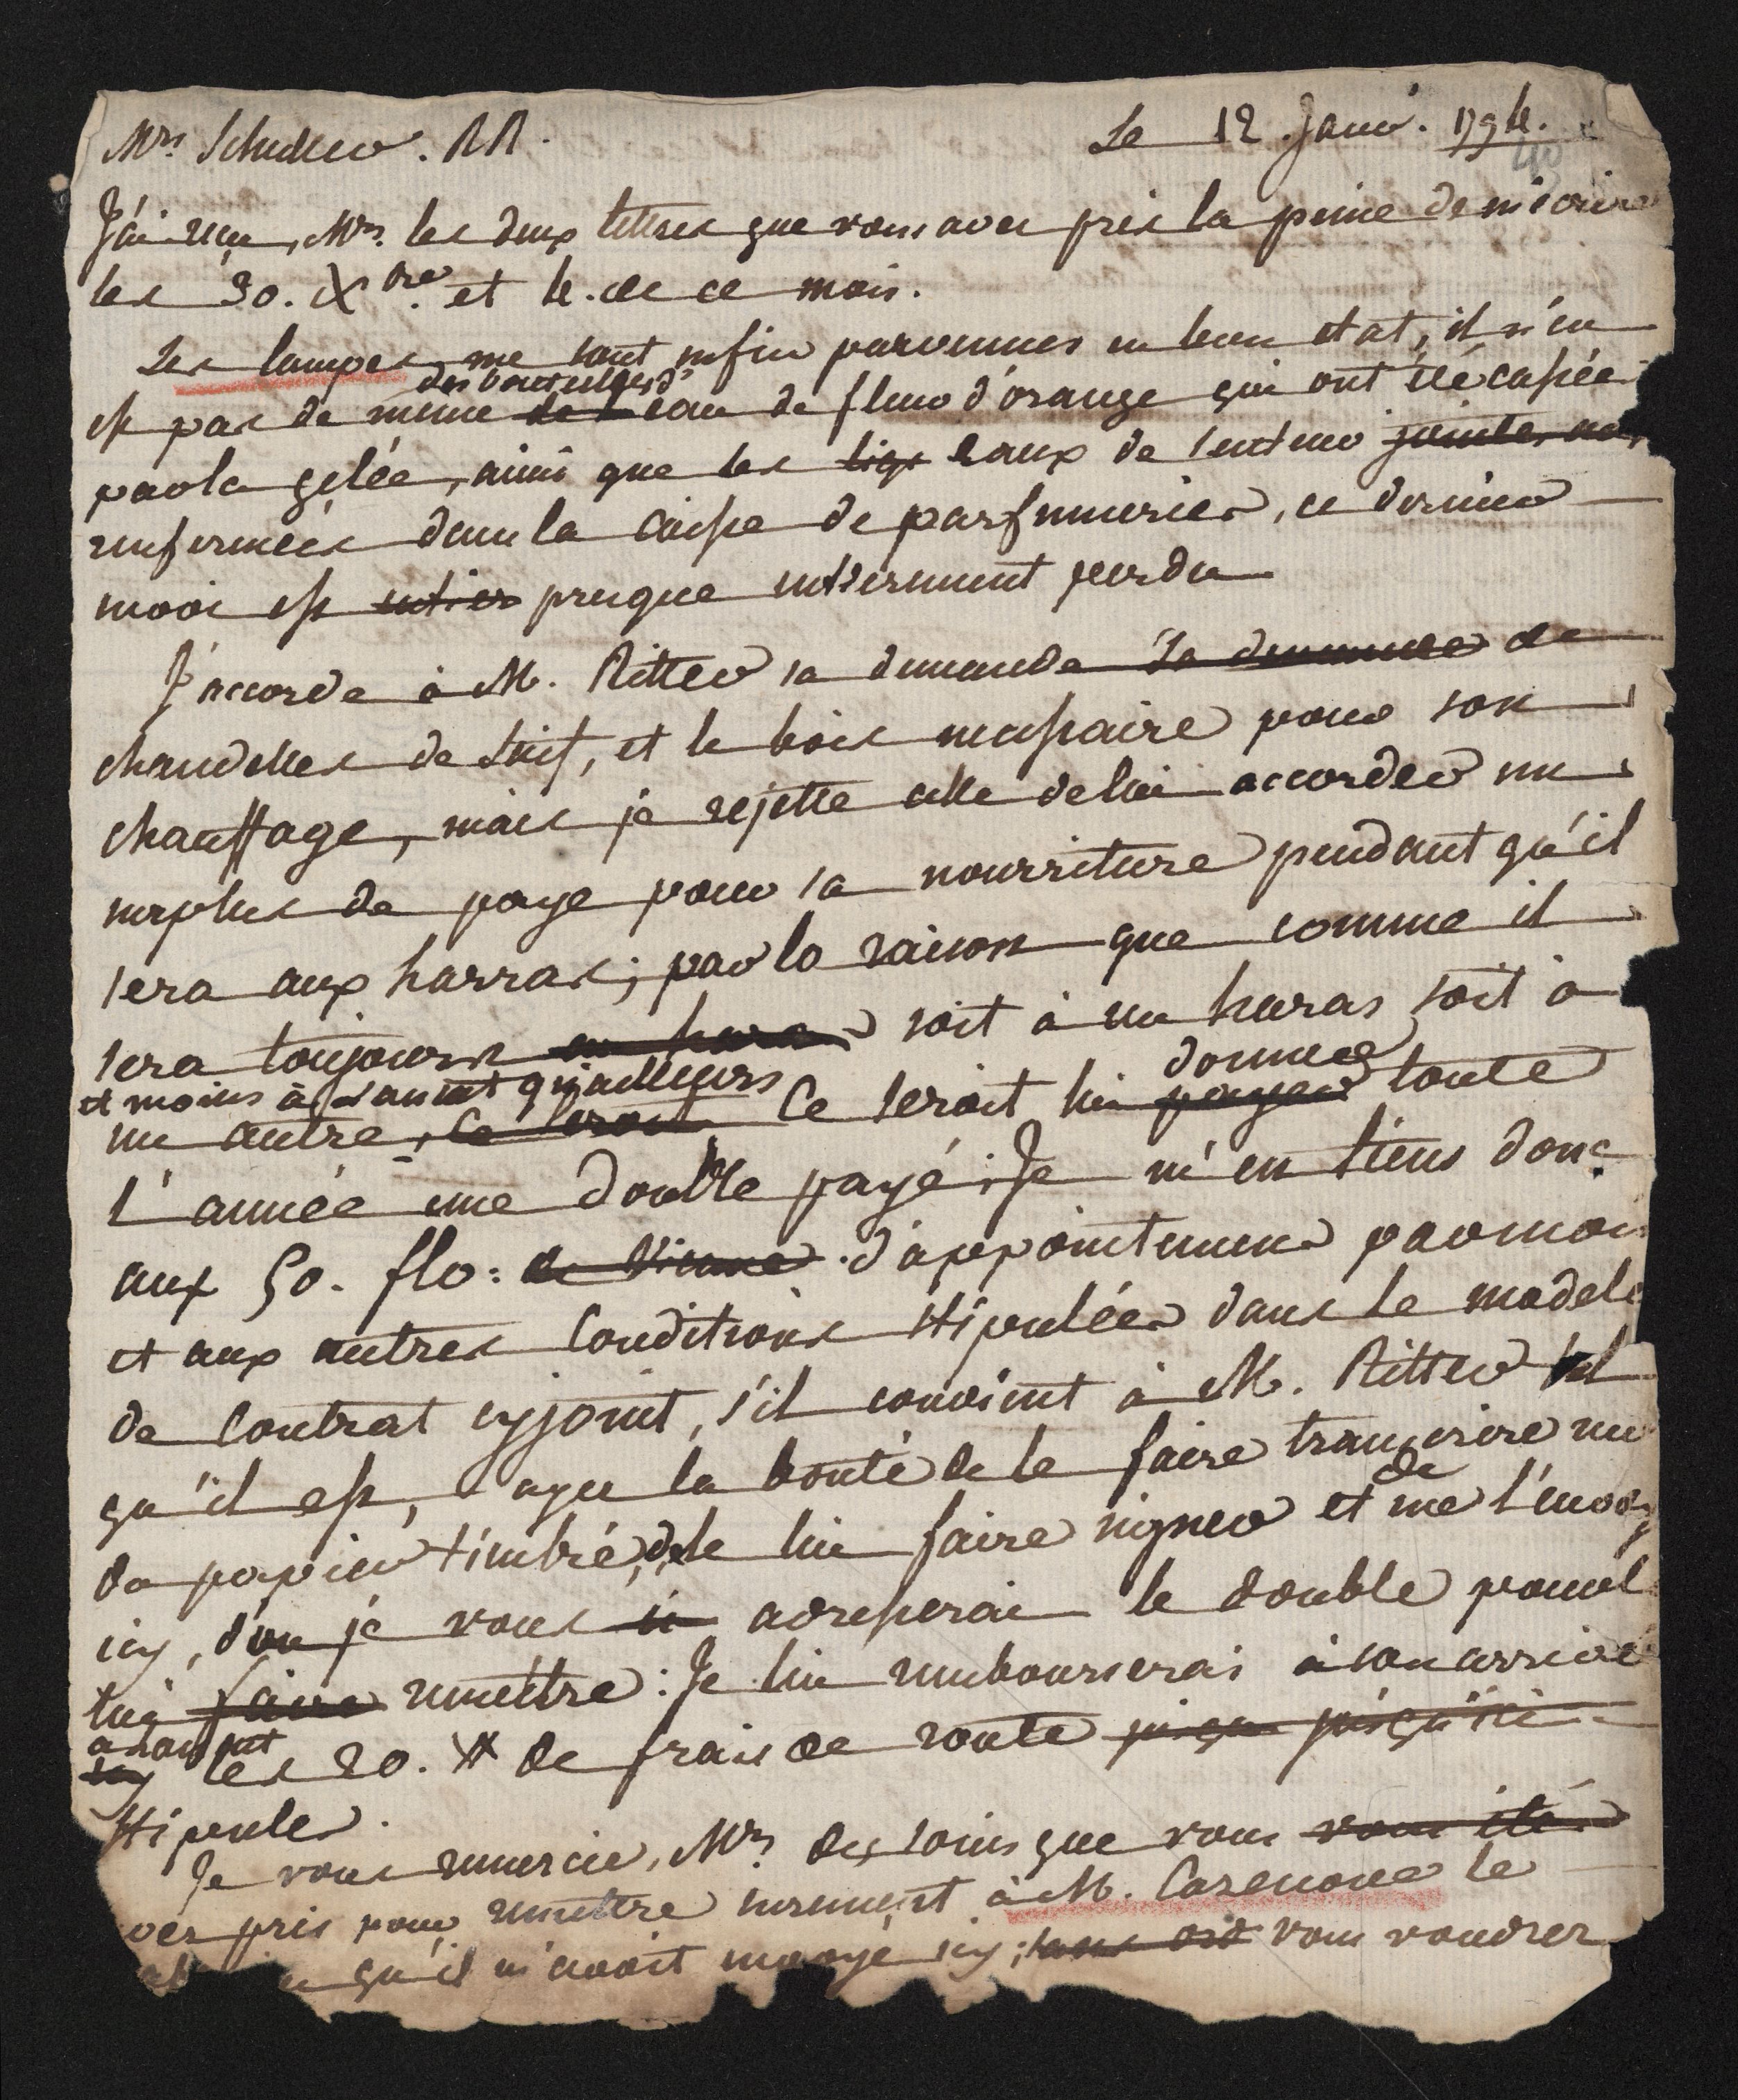 Mrs. Schuller. AA.
Le 12 Janv. 1794.
J'ai reçu, Mrs. les deux lettres que vous avez pris la peine de m'écrire
les 30. Xbre. et 4. de ce mois.
Les lampes me sont enfin parvenues en bon état, il n'en
des bouteilles d'
est pas de meme de l eau de fleur d'orange qui ont été cassées
par la gelée, ainsi que les liqs eaux de senteur jointes
renfermées dans la caisse de parfumeries, ce dernier
mois est entier presque entierement perdu
J'accorde à M. Ritter sa demande sa demande de
chandelles de Suif, et le bois necessaire pour son
chauffage, mais je rejette celle de lui accorder un
surplus de paye pour sa nourriture pendant qu'il
sera aux harras; par la raison que comme il
sera toujours au hara soit à un haras soit à
et moins à qu'ailleurs
donner
un autre, ce seroit Ce seroit lui payer toute
l'année une double paye; Je m'en tiens donc
aux 50. flo: de Vienne d'appointemens par mois
et aux autres Conditions stipulées dans le modele
de Contrat cyjoint, s'il convient à M. Ritter tel
qu'il est, ayez la bonté de le faire transcrire sur
de
du papier timbré, de le lui faire signer et me l'envoy
icy, d'ou je vous adresserai le double pour le
lui faire remettre: Je lui rembourserai à son arrivée
icy les 20. # de frais de route jusqu jusqu'ici
Stipulés.
Je vous remercie, Mrs. des soins que vous vous été
vez pris pour remettre surement à M. Casenove le
qu'il m'avoit envoyé icy; vous voudrez